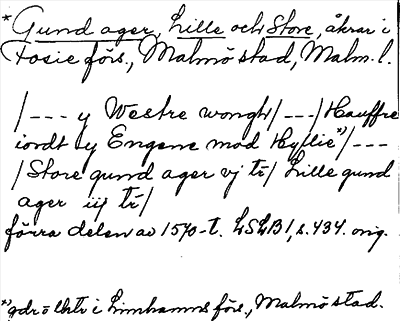 * Gund ager, Lille och Store, åkrar i
Fosie förs., Malmö stad, Malm. l.
/--- y Westre wongh/---/Hauffre
iordt y Engene mod Hyllie*)/---
/Store gund ager vj tr/Lille gund
ager iij tr/
förra delen av 1570-t. LSLB1, s. 434. orig.
*) gdr o lhtr i Limhamns förs., Malmö stad.